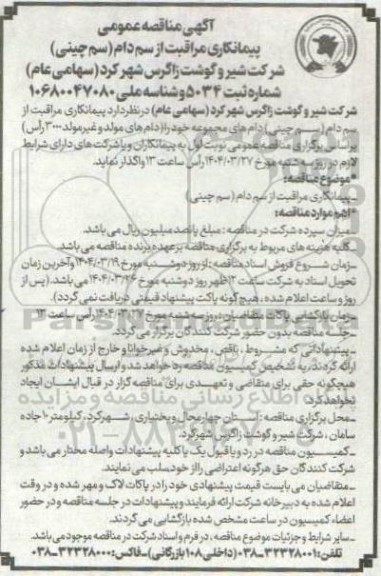 آگهی مناقصه عمومی
پیمانکاری مراقبت از سم دام (سم چینی)
شرکت شیر و گوشت زاگرس شهر کرد (سهامی عام)
شماره ثبت ۵۰۳۴ و شناسه ملی ۱۰۶۸۰۰۴۷۰۸۰
شرکت شیر و گوشت زاگرس شهر کرد (سهامی عام) در نظر دارد پیمانکاری مراقبت از
سم دام (سم چینی) دام های مجموعه خود را (دام های مولد و غیر مولد ۳۰۰۰ رأس)
بر اساس برگزاری مناقصه عمومی نوبت اول به پیمانکاران و یا شرکت های دارای شرایط
لازم در روز سه شنبه مورخ ۱۴۰۴/۰۳/۲۷ رأس ساعت ۱۳ واگذار نماید.
*موضوع مناقصه:
_ پیمانکاری مراقبت از سم دام (سم چینی)
*اهم موارد مناقصه:
_ میزان سپرده شرکت در مناقصه: مبلغ پانصد میلیون ریال می باشد.
_ کلیه هزینه های مربوط به برگزاری مناقصه بر عهده برنده مناقصه می باشد.
_ زمان شروع فروش اسناد مناقصه: از روز دوشنبه مورخ ۱۴۰۴/۰۳/۱۹ و آخرین زمان
تحویل اسناد به شرکت ساعت ۱۲ ظهر روز دوشنبه مورخ ۱۴۰۴/۰۳/۲۶ می باشد. (پس از
روز و ساعت اعلام شده، هیچ گونه پاکت پیشنهاد قیمتی دریافت نمی گردد).
_ زمان بازگشایی پاکات متقاضیان: روز سه شنبه مورخ ۱۴۰۴/۰۳/۲۷ رأس ساعت ۱۳
_ جلسه مناقصه بدون حضور شرکت کنندگان برگزار می گردد.
_ پیشنهاداتی که مشروط، ناقص، مخدوش و غیر خوانا و خارج از زمان اعلام شده
ارائه گردند، به تشخیص کمیسیون مناقصه رد خواهد شد و ارسال پیشنهادات مذکور
هیچگونه حقی برای متقاضی و تعهدی برای مناقصه گزار در قبال ایشان ایجاد
نخواهد کرد.
_ محل برگزاری مناقصه: استان چهارمحال و بختیاری، شهر کرد، کیلومتر ۱۰ جاده
سامان، شرکت شیر و گوشت زاگرس شهر کرد.
_ کمیسیون مناقصه در رد و یا قبول یک یا کلیه پیشنهادات واصله مختار می باشد و
شرکت کنندگان حق هرگونه اعتراضی را از خود سلب می نمایند.
_ متقاضیان می بایست قیمت پیشنهادی خود را در پاکات لاک و مهر شده و در وقت
اعلام شده به دبیرخانه شرکت ارائه فرمایند و پیشنهادات در جلسه مناقصه و در حضور
اعضاء کمیسیون در ساعت مشخص شده بازگشایی می گردند.
_ سایر شرایط و جزئیات موضوع مناقصه، در فرم و اسناد شرکت در مناقصه موجود می باشد.
تلفن: ۳۲۳۲۸۰۰۱-۰۳۸ (داخلی ۱۰۸ بازرگانی) - فاکس: ۳۲۳۲۸۰۰۰-۰۳۸